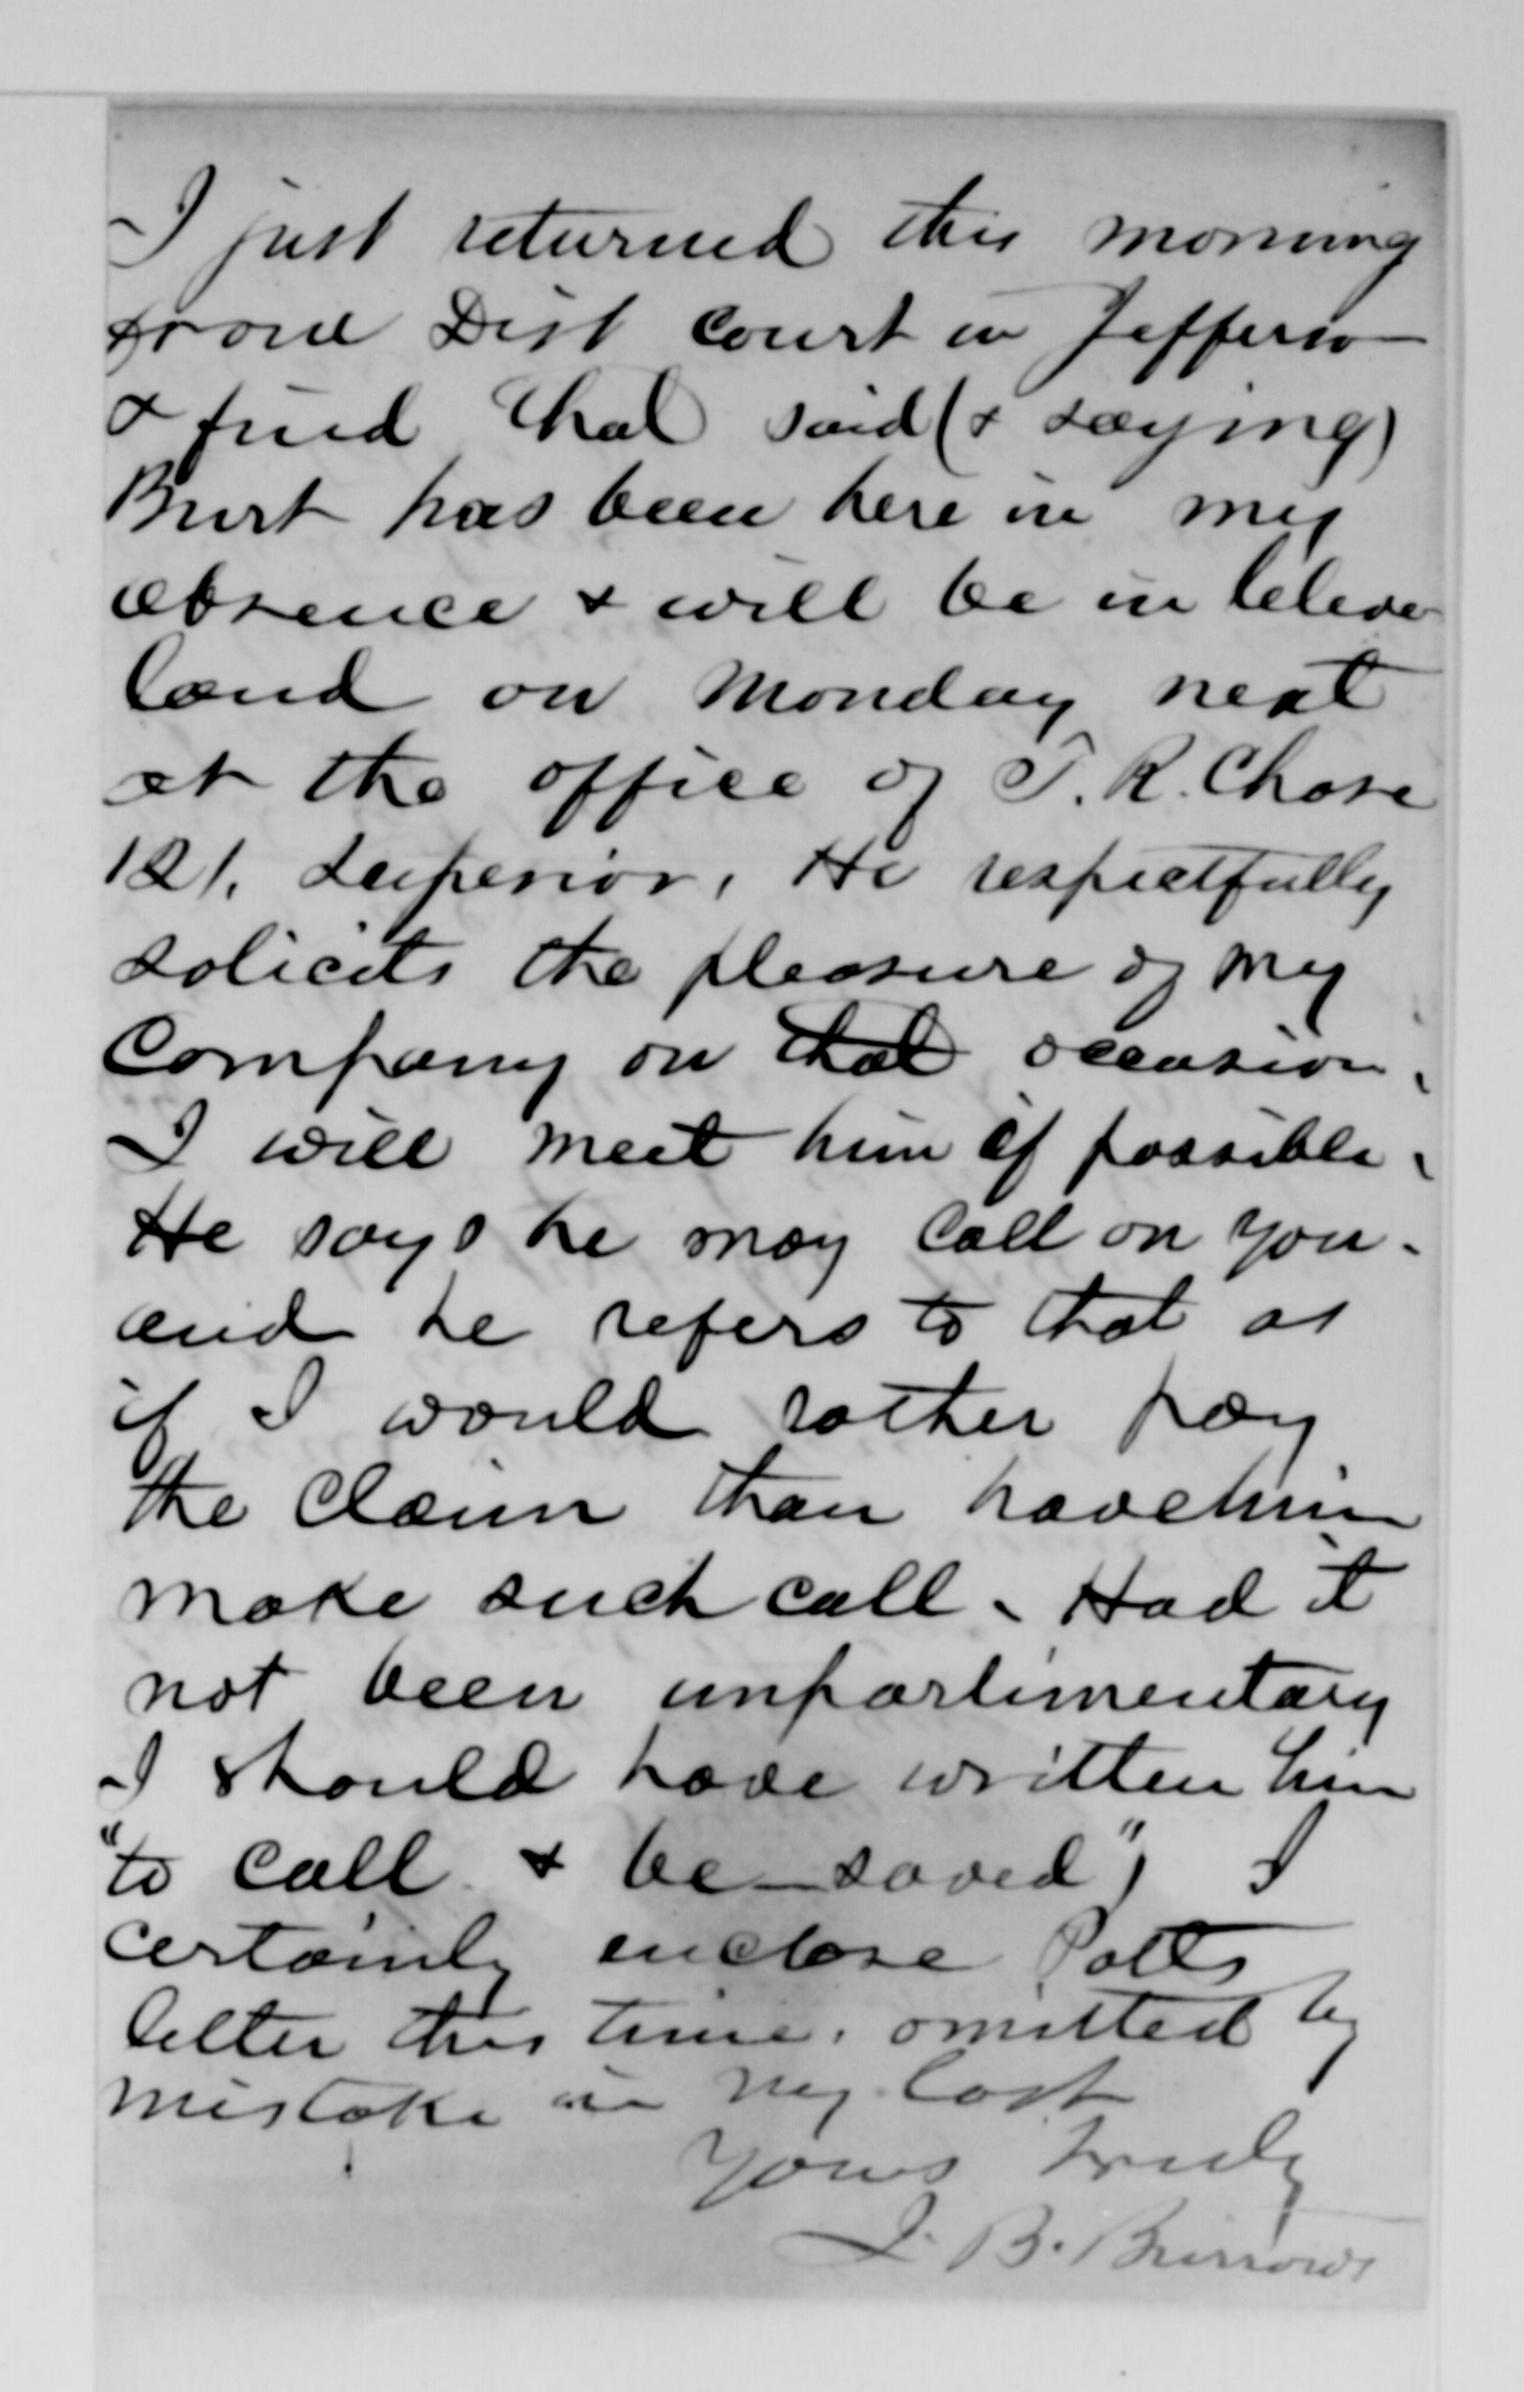 I just returned this morning
from Dist Court in Jefferson
& find that said (& saying)
Burt has been here in my
absence & will be in Cleve
land on Monday next
at the office of T. R. Chase
121. Superior, He respectfully
solicits the pleasure of my
Company on that occasion.
I will meet him if possible.
He says he may call on you.
and he refers to that as
if I would rather pay
the claim than have him
make such call. Had it
not been unparlimentary
I should have written him
"to call & be—saved") I
certainly enclose Potts
letter this time, omitted by
mistake in my last
Yours truly
J. B. Burrows